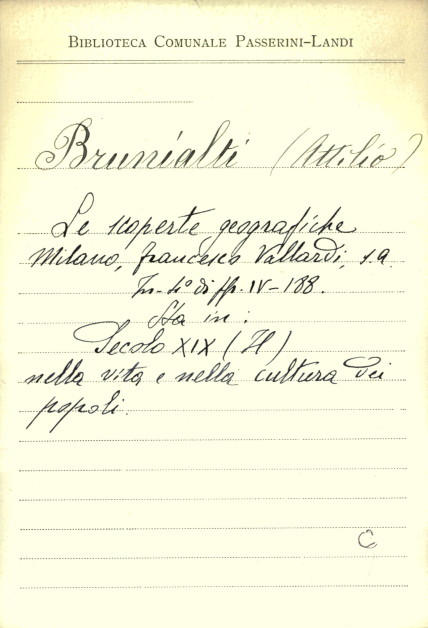 Biblioteca Comunale Passerini-Landi
Brunialti (Attilio)
Le scoperte geografiche
Milano, Francesco Vallardi, s.a
In-4° di pp. IV-188.
Sta in:
Secolo XIX (Il)
nella vita e nella cultura dei
popoli.
C